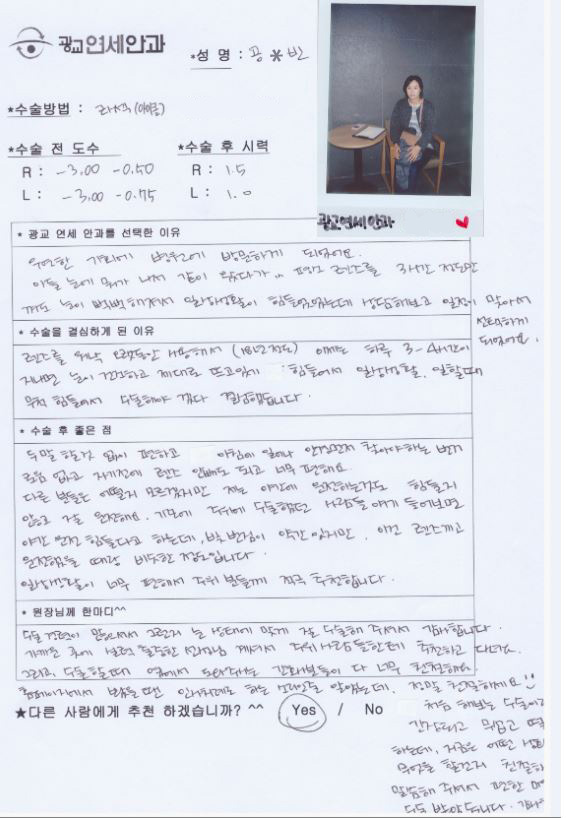 광교연세안과
*성 명 : 공*빈
*수술방법 : 라섹(아이움)
*수술 전 도수
R : -3.00 -0.50
L : -3.00 -0.75
*수술 후 시력
R : 1.5
L : 1.0
광교연세안과
* 광교 연세 안과를 선택한 이유
우연한 기회에 병원에 방문하게 되었어요.
아들 눈에 뭐가 나서 같이 왔다가 렌즈를 3시간 정도만
껴도 눈이 뻑뻑해져서 일상생활이 힘들었었는데 상담해보고 일정이 맞아서
선택하게
되었어요.
* 수술을 결심하게 된 이유
렌즈를 워낙 오랫동안 사용해서 (18년정도) 이제는 하루 3-4시간이
지나면 눈이 건조하고 제대로 뜨고있기 힘들어서 일상생활, 일할때
무척 힘들어서 수술해야 겠다 결심했습니다.
* 수술 후 좋은 점
두말 할것 없이 편하고 아침에 일어나 안경먼저 찾아야하는 번거
로움 없고 자기전에 렌즈 안빼도 되고 너무 편해요.
다른 분들은 어떨지 모르겠지만 저는 야간에 운전하는것도 힘들지
않고 잘 운전해요. 기존에 주위에 수술했던 사람들 얘기 들어보면
야간 운전 힘들다고 하는데, 빛 번짐이 약간 있지만, 이건 렌즈끼고
운전했을 때랑 비슷한 정도입니다.
일상생활이 너무 편해서 주위 분들께 적극 추천합니다.
* 원장님께 한마디^^
수술 경험이 많으셔서 그런지 눈 상태에 맞게 잘 수술해 주셔서 감사합니다.
가까운 곳에 실력 출중한 선생님 계셔서 주위 사람들한테 추천하고 다녀요.
그리고, 수술할때 옆에서 도와주시는 간호사분들이 다 너무 친절해요.
홈페이지에서 봤을 땐 인사치레로 하는 소리인줄 알았는데, 정말 친절하세요
처음 해보는 수술이라
긴장되고 무섭고
하는데, 지금은 어떤
무엇을 할건지 친절하
말씀해 주셔서 편한
수술 받았습니다.
★다른 사람에게 추천 하겠습니까? ^^ Yes / No